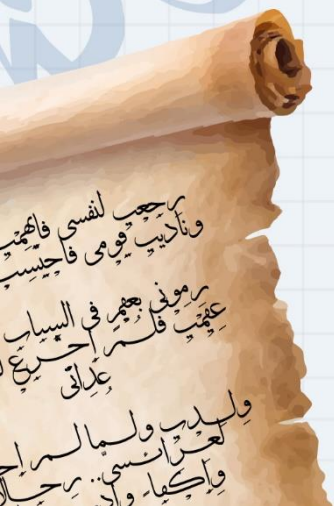 رجعت لنفسي فاتهمت
وناديت قومي فاحتسبت
رموني بعقم في الشباب
عقمت فلم أجزع ل
عداتي
ولدت ولما لم أجد
لعرائسي.. رجالا
وأكفاء وأد